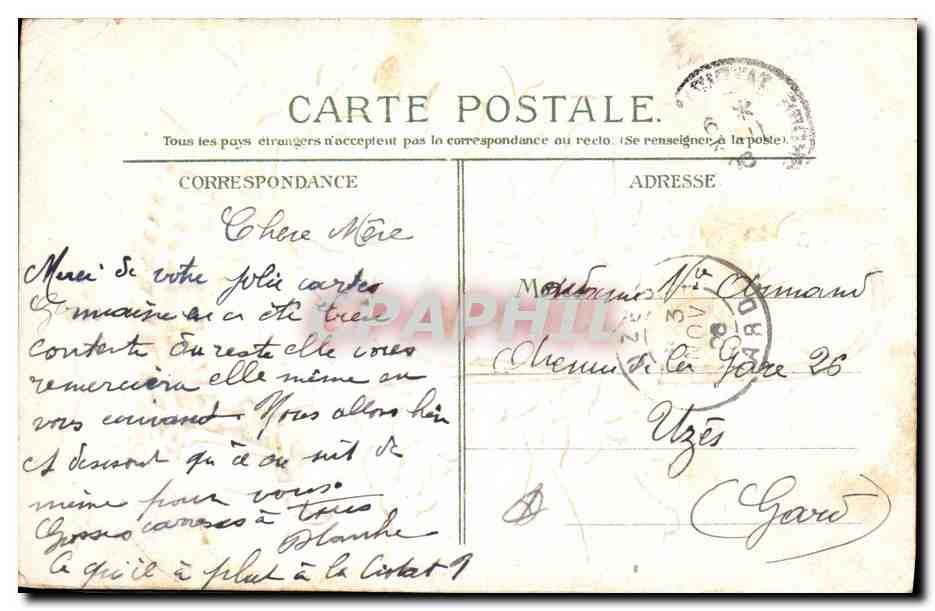 CARTE POSTALE.
Tous les pays étrangers n'acceptent pas la correspondance au recto. (Se renseigner à la poste).
CORRESPONDANCE
Chere Mère
Merci de votre jolie cartes
Germaine en a été tres
contente du reste elle vous
remerciera elle même en
vous ecrivant. Nous allons bien
et desirons qu'il en soit de
même pour vous.
Grosses caresses à tous
Blanche
Ce qu'il à plut à la Ciotat ?
ADRESSE
Madame Vve Armand
Chemin de la Gare 26
Uzès
(Gard)
CPAPHIL
GARD
3
NOV
08